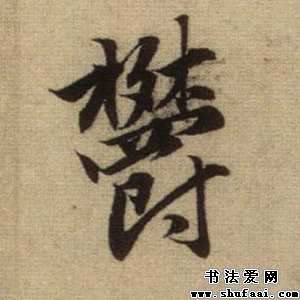 欝
书法爱网
www.shufaai.com